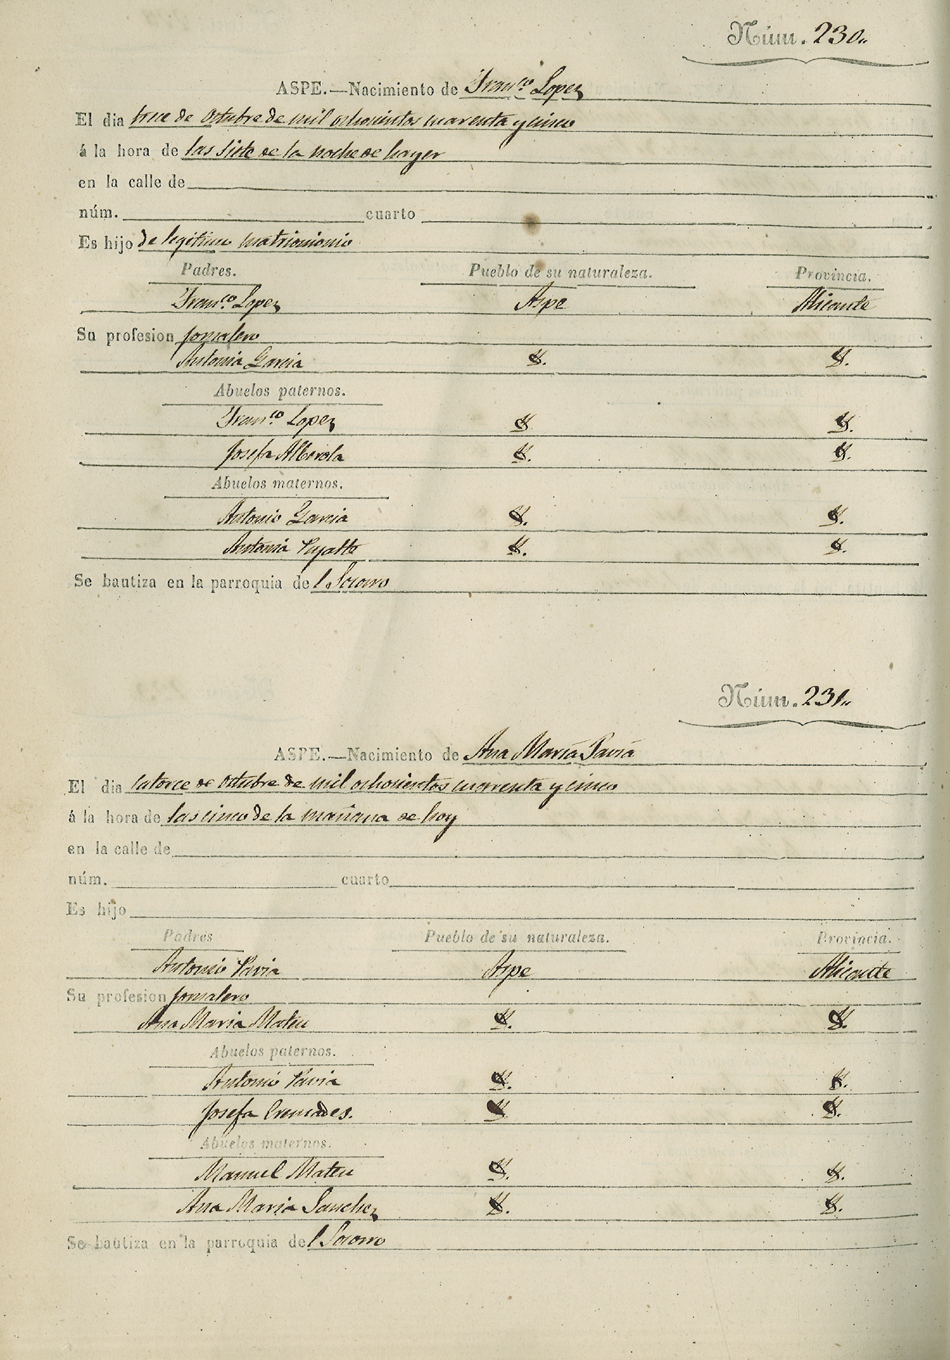 Núm. 230.
ASPE.—Nacimiento de Franco Lopez
El dia trece de Octubre de mil ochocientos cuarenta y cinco
á la hora de las Siete de la noche de hayer
en la calle de
núm. cuarto
Es hijo de legitimo matrimonio
Padres. Pueblo de su naturaleza. Provincia.
Franco Lopez Aspe Alicante
Su profesion jornalero
Antonia Garcia
Abuelos paternos.
Franco Lopez
Josefa Alberola
Abuelos maternos.
Antonio Garcia
Antonia
Se bautiza en la parroquia del Socorro
Núm. 231.
ASPE.—Nacimiento de Ana María Pavia
El dia catorce de Octubre de mil ochocientos cuarenta y cinco
á la hora de las cinco de la mañana de hoy
en la calle de
núm. cuarto
Es hijo
Padres Pueblo de su naturaleza. Provincia.
Antonio Pavia Aspe Alicante
Su profesion jornalero
Ana Maria Mateu
Abuelos paternos.
Antonio Pavia
Josefa Cremades.
Abuelos maternos.
Manuel Mateu
Ana Maria Sanchez
Se bautiza en la parroquia del Socorro